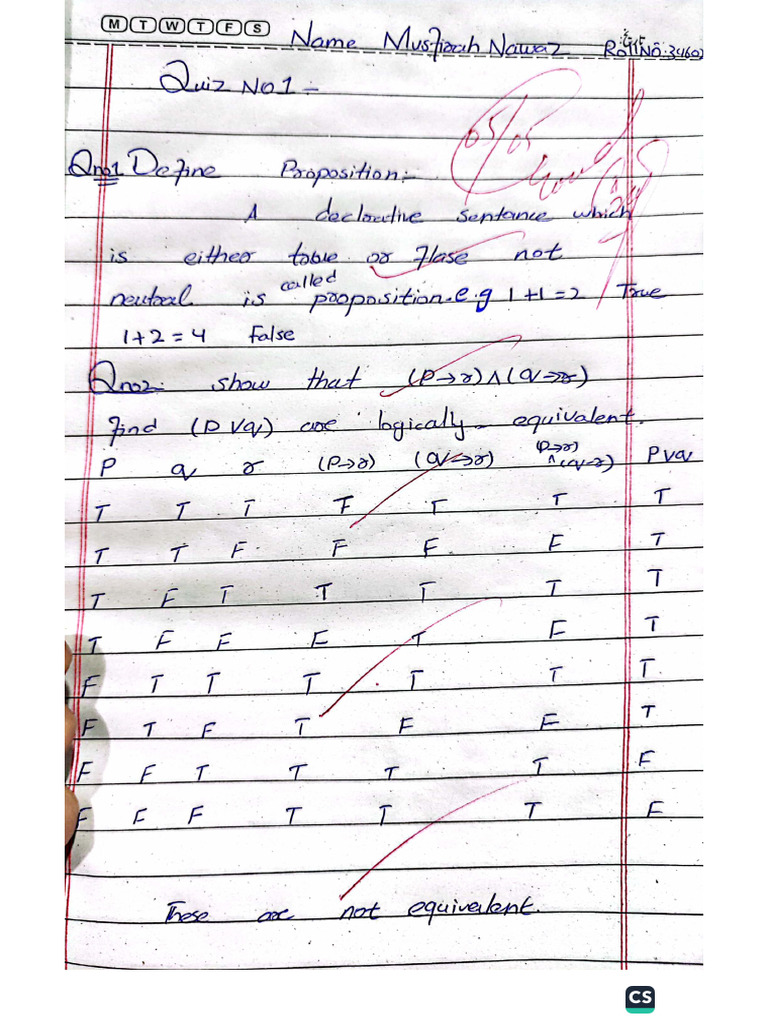 M T W T F S
Name Musfirah Nawaz Roll No: 3460
Quiz No 1 :-
05/05
Qno1 Define Proposition:-
A declarative sentance which
is either table or flase not
neutral is called proposition. e.g 1+1=2 True
1+2=4 False
Qno2. show that (P→r)∧(q→r)
find (p∨q) are logically equivalent.
P q r (P→r) (q→r) (P→r)∧(q→r) P∨q
T T T F T T T
T T F F F F T
T F T T T T T
T F F F T F T
F T T T T T T
F T F T F F T
F F T T T T F
F F F T T T F
These are not equivalent.
CS